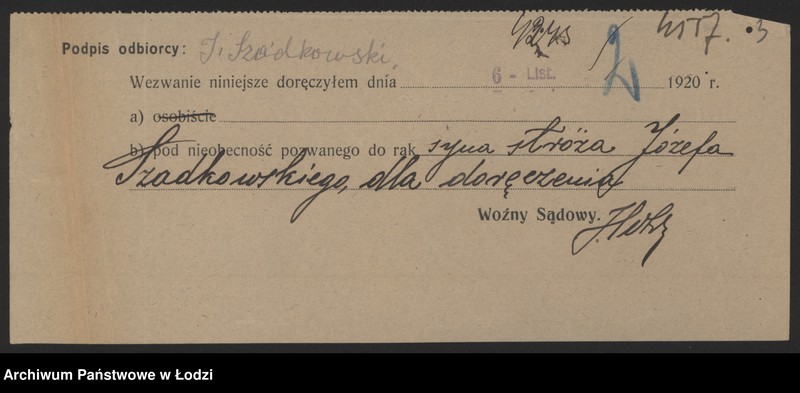 4157. 3
2
Podpis odbiorcy: J. Szadkowski.
Wezwanie niniejsze doręczyłem dnia 6 - List. 1920 r.
a) osobiście
b) pod nieobecność pozwanego do rąk syna stróża Józefa
Szadkowskiego, dla doręczenia
Woźny Sądowy.
Archiwum Państwowe w Łodzi